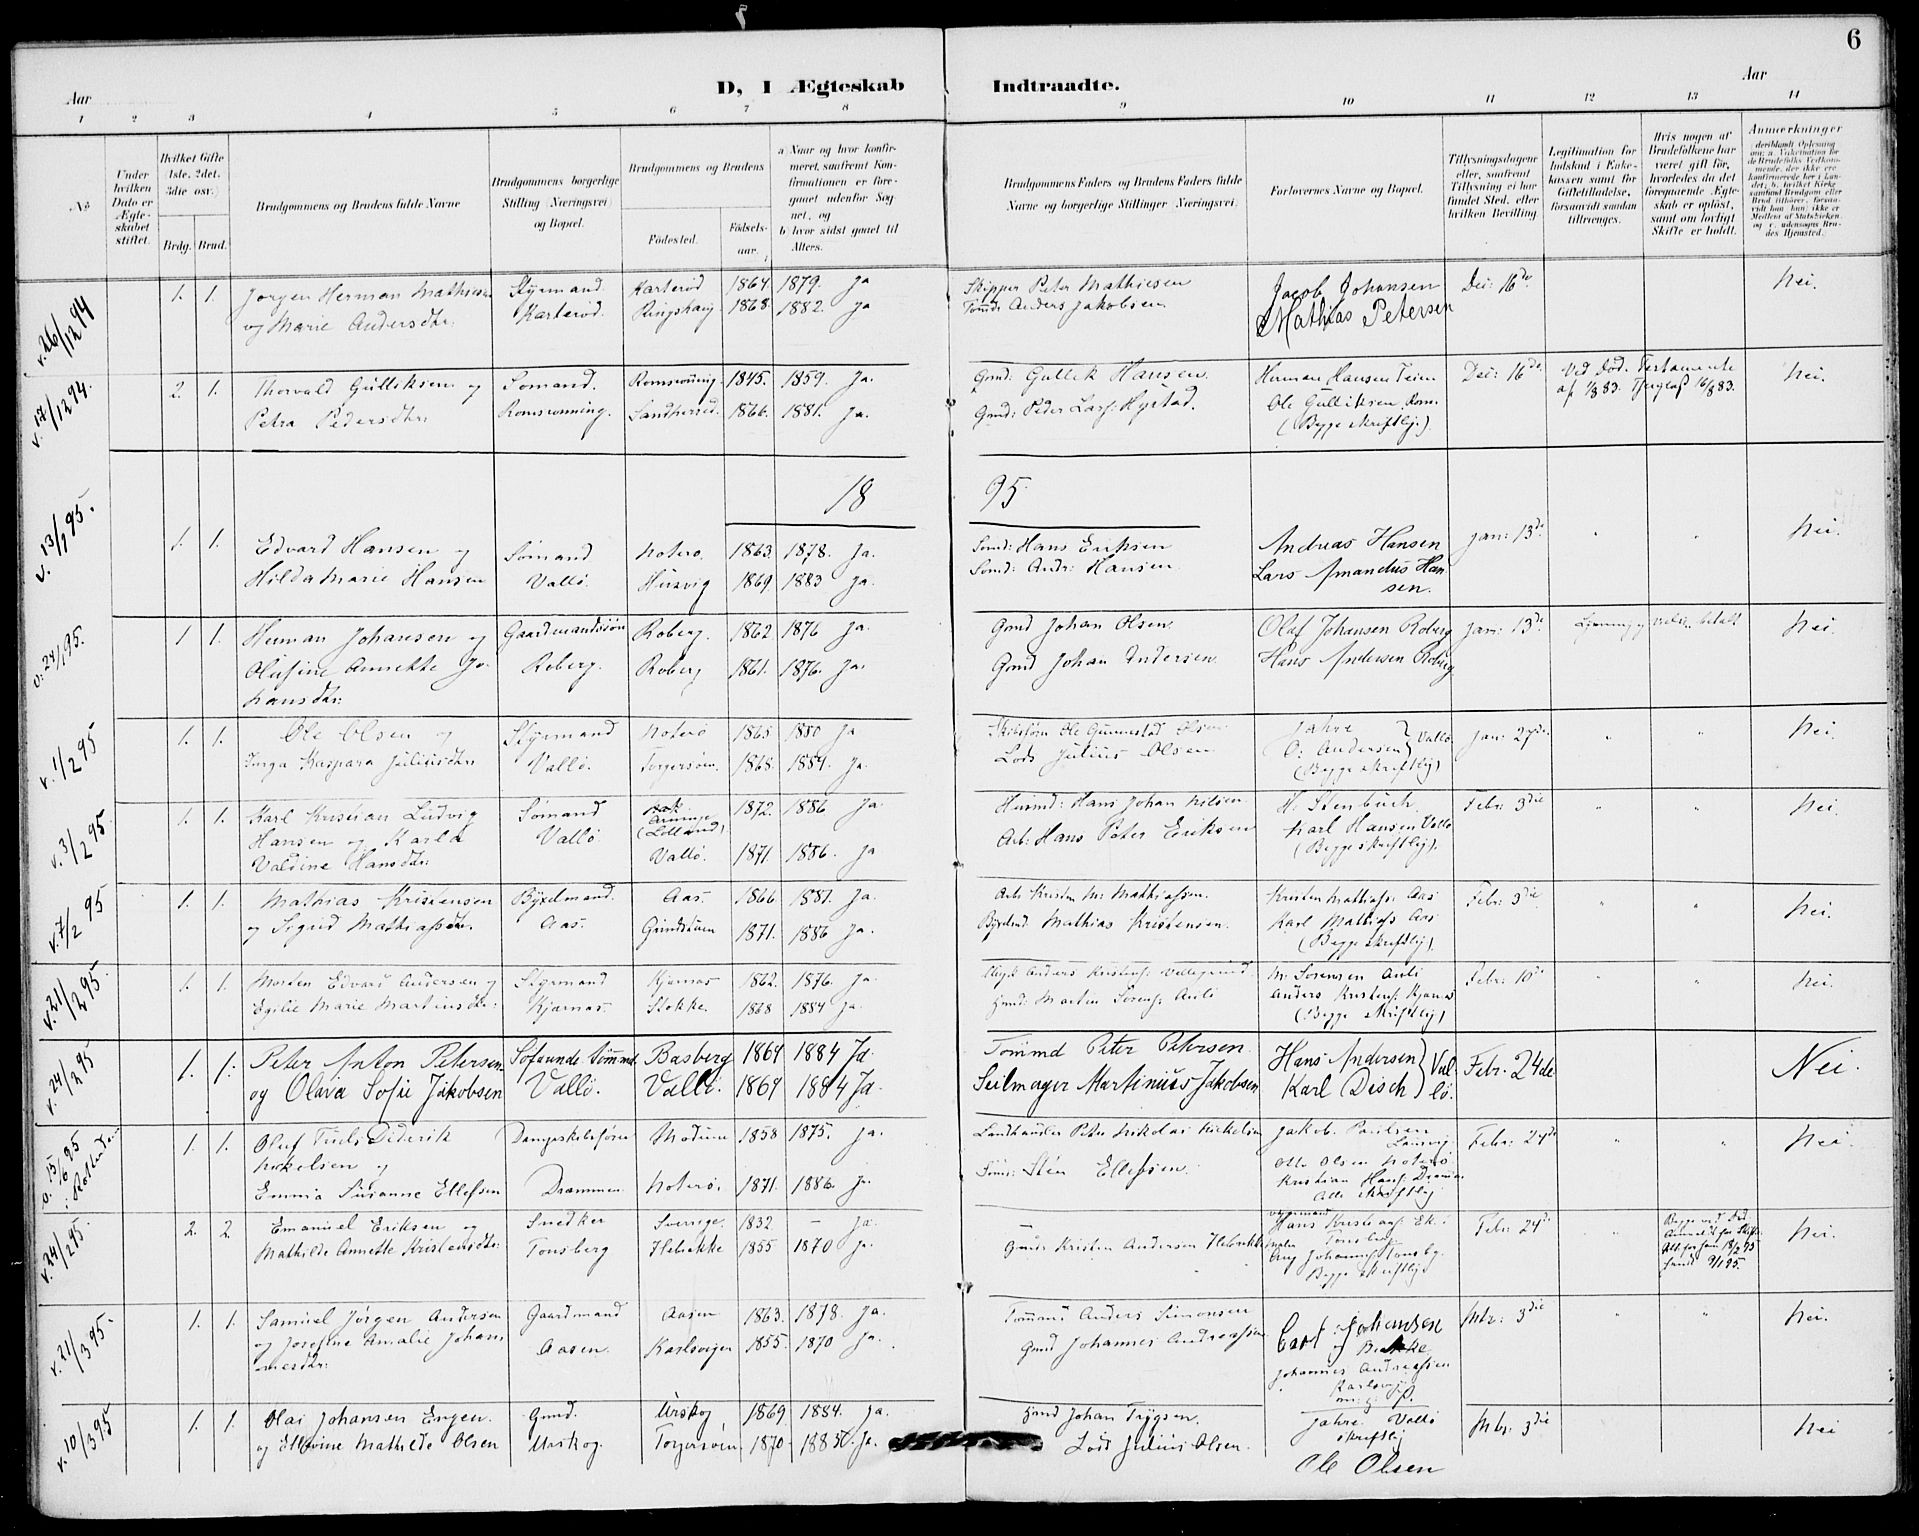 6
D, I Ægteskab Indtraadte.
Aar Aar
1 2 3 4 5 6 7 8 9 10 11 12 13 14
No
Under hvilken Dato er Ægteskabet stiftet.
Hvilket Gifte (1ste, 2det, 3die osv.)
Brdg. Brud.
Brudgommens og Brudens fulde Navne
Brudgommens borgerlige Stilling (Næringsvei) og Bopæl.
Brudgommens og Brudens
Fødested. Fødselsaar.
a Naar og hvor konfirmeret, saafremt Konfirmationen er foregaaet udenfor Sognet, og
b hvor sidst gaaet til Alters.
Brudgommens Faders og Brudens Faders fulde Navne og borgerlige Stillinger (Næringsvei).
Forlovernes Navne og Bopæl.
Tillysningsdagene eller, saafremt Tillysning ei har fundet Sted, efter hvilken Bevilling.
Legitimation for Indskud i Enkekassen samt for Giftetilladelse, forsaavidt saadan tiltrænges.
Hvis nogen af Brudefolkene har været gift før, hvorledes da det foregaaende Ægteskab er opløst, samt om lovligt Skifte er holdt.
Anmærkninger
v. 26/12 94 1. 1. Jørgen Herman Mathiesen Styrmand Karterød 1864 1879. Ja Skipper Peter Mathiesen Jacob Johansen Dec: 16de Nei.
og Marie Andersdtr: Karterød. Ringshaug 1868. 1882. Ja Tømd: Anders Jakobsen Mathias Petersen
v. 17/12 94. 2. 1. Thorvald Gulliksen og Sømand. Romsrønning 1845. 1859. Ja. Gmd: Gullik Hansen Herman Hansen Teien Dec: 16de Ved Død. Testamente Nei.
Petra Pedersdtr: Romsrønning. Sandhersed. 1866. 1881. Ja. Gmd: Peder Lars: Ole Gulliksen Rom. af 1/8 83. 16/8 83.
(Begge skriftlig.)
18 95
v. 13/1 95. 1. 1. Edvard Hansen og Sømand Noterø. 1863 1878. Ja. Sømd: Hans Eriksen Andreas Hansen Jan: 13de " " Nei.
Hilda Marie Hansen Vallø. Husvig 1869 1883 Ja. Sømd: Andr: Hansen Lars Amandus Han
sen.
v. 24/1 95. 1 1. Herman Johansen og Gaardmandssøn Roberg. 1862 1876 Ja. Gmd Johan Olsen Olaf Johansen Roberg Jan: 13de betalt Nei.
Olufine Annette Jo- Roberg. Roberg 1861. 1876. Ja. Gmd Johan Andersen Hans Andersen Roberg
hansdtr:
v. 1/2 95 1. 1. Ole Olsen og Styrmand Noterø 1865 1880 Ja Ole Gunnestad Olsen Jahre Jan: 27de " " Nei.
Inga Kaspara Juliusdtr: Vallø. Torgersøen. 1868. 1884. Ja. Lods Julius Olsen O: Andersen } Vallø
(Begge skriftlig)
v. 3/2 95. 1. 1. Karl Kristian Ludvig Sømand 1872. 1886 Ja. Husmd: Hans Johan Nilsen H. Stenbuch Febr: 3die " " Nei.
Hansen og Karla Vallø (Lolland) Arb: Hans Peter Eriksen Karl Hansen Vallø
Valdine Hansdtr: Vallø. 1871 1886. Ja (Begge skriftlig).
v. 7/2 95 1. 1. Mathias Kristensen Bygselmand. Aas. 1866 1881. Ja. Arb. Kristen M: Mathiassen. Kristen Mathiass: Aas Febr: 3die " " Nei.
og Sigrid Mathiasdtr: Aas. Grindstuen 1871. 1886 Ja. Bygselmd. Mathias Kristensen. Karl Mathiass Aas
(Begge skriftlig)
v. 21/2 95. 1. 1. Morten Edvard Andersen og Styrmand Kjærnæs 1862. 1876. Ja. Anders Kristens: M: Sørensen Auli Febr: 10de " " Nei.
Egilie Marie Martinsdtr: Kjærnæs. Stokke. 1868 1884 Ja. Martin Sørens: Auli Anders Kristens: Kjærnæs
(Begge skriftlig)
v. 24/2 95 1. 1. Peter Anton Petersen Vallø. Basberg 1864 1884 Ja. Tømmd Peter Petersen Hans Andersen } Val- Febr. 24de Nei.
og Olava Sofie Jakobsen Vallø. 1864 1884 Ja Seilmager Martinius Jakobsen Karl Disch } lø.
v. 15/6 95 1. 1. Oluf Diderik Dampskibsfører Modum 1858 1875. Ja. Landhandler Peter Nikolai Mikkelsen Jakob Paulsen Febr: 24de " " Nei.
Mikkelsen og Otto Olsen Noterø
Emma Susanne Ellefsen Drammen Noterø. 1871. 1886. Ja. Sten Ellefsen Kristian Hans: Drammen
Alle skriftlig
v. 24/2 95. 2. 2. Emanuel Eriksen og Snedker Sverrige. 1832. – Ja. Hans Kristians: Ek i Febr: 24de " Begge ved Død Nei.
Mathilde Annette Kristensdtr: Tønsberg Hebekke 1855 1870 Ja. Kristen Andersen Hebekke Tønsberg
Aug Johanns: Tønsbg.
Begge skriftlig
v. 21/3 95. 1. 1. Samuel Jørgen Andersen Gaardmand Aasen 1863. 1878. Ja. Tømmd Anders Simonsen Carl Johansen Mts: 3die " " Nei.
og Josefine Amalie Johan Aasen. Karlsvigen 1855. 1870 Ja. Gmd Johannes Andreassen Bekke
nesdtr: Johannes Andreassen
v. 10/3 95 1. 1. Olai Johansen Engen. Gmd. Urskog 1869 1884. Ja. Johan Trygsen. Jahre. Vallø Mts: 3die Nei
og Ellevine Mathilde Olsen Urskog. Torgersøen. 1870. 1885. Ja. Lods Julius Olsen. skriftlig
Ole Olsen